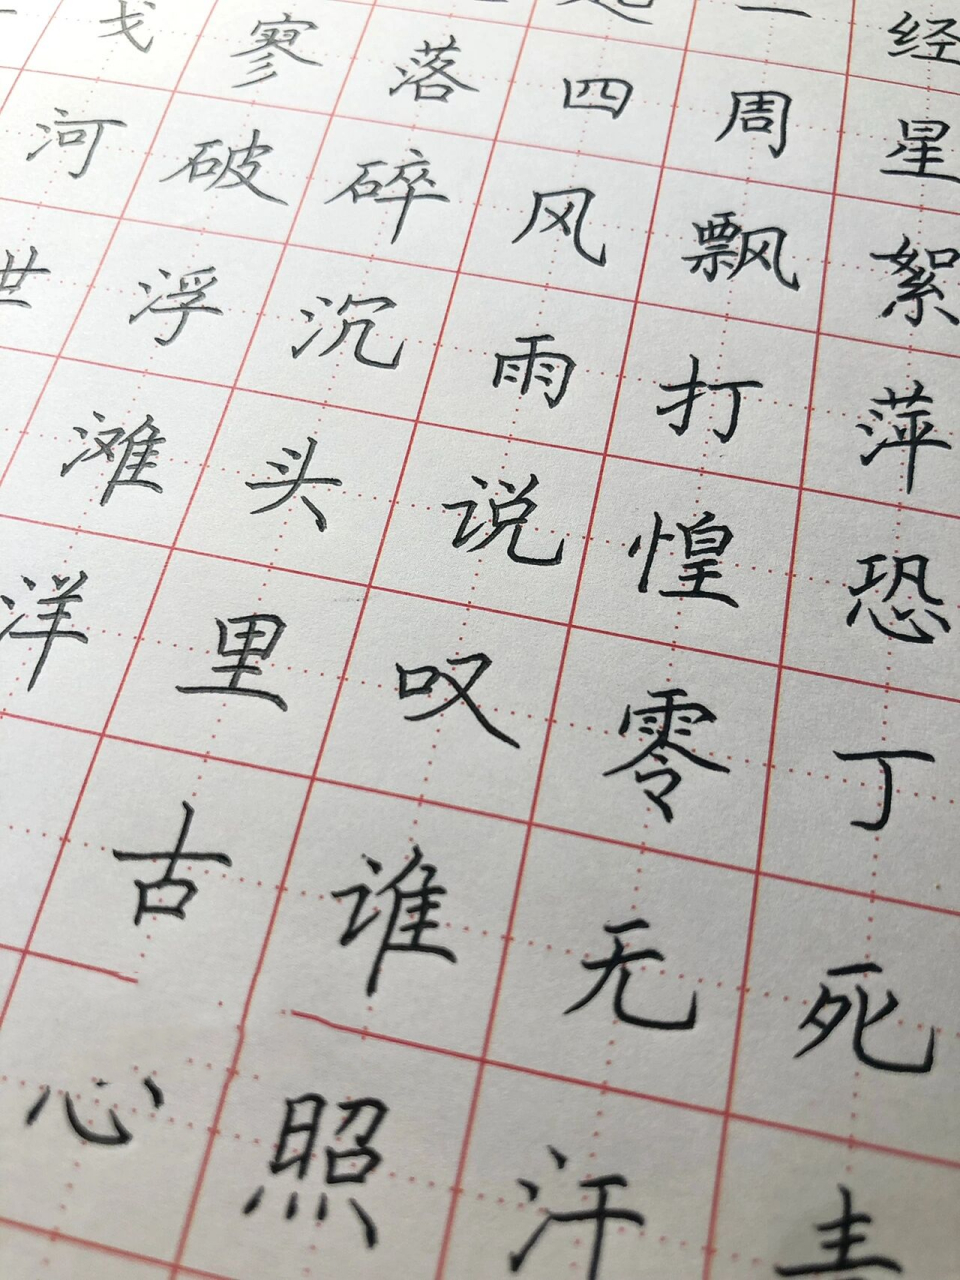 一经
戈寥落四周星
河破碎风飘絮
世浮沉雨打萍
滩头说惶恐
洋里叹零丁
古谁无死
心照汗